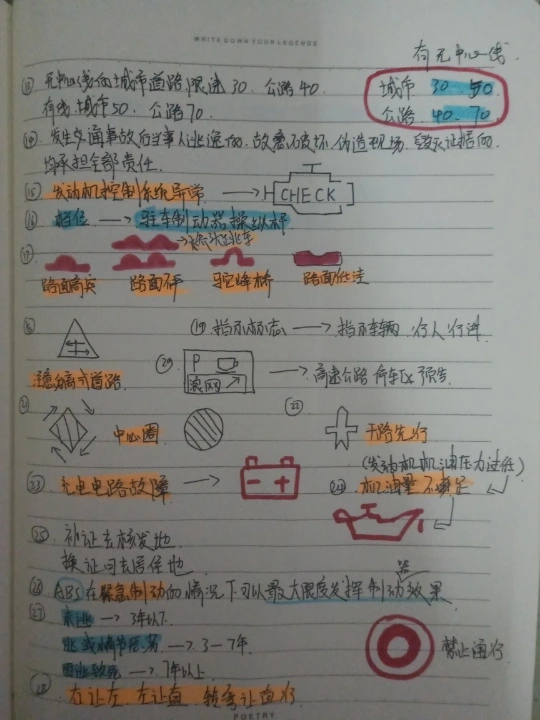 WRITE DOWN YOUR LEGENDS
有无中心线
⑬ 无中心线的城市道路,限速30、公路40
城市 30 50
有线 城市50、公路70
公路 40、70
⑭ 发生交通事故后当事人逃逸的,故意破坏、伪造现场、毁灭证据的
均承担全部责任
⑮ 发动机控制系统异常 → CHECK
⑯ → 驻车制动器操纵杆
⑰
路面高突 路面不平 驼峰桥 路面低洼
⑱
⑲ 指示标志 → 指示车辆、行人行进
注意分离式道路
⑳ P → 高速公路停车区预告
㉑ 中心圈
㉒ 干路先行
(发动机机油压力过低)
㉓ 充电电路故障 →
㉔ 机油量不满足
㉕ 补证去核发地
换证可去居住地
㉖ ABS在紧急制动的情况下可以最大限度发挥制动器效果
㉗ → 3年以下
逃 或 情节恶劣 → 3—7年
因逃致死 → 7年以上
禁止通行
㉘ 右让左 右让直 转弯让直行
POETRY